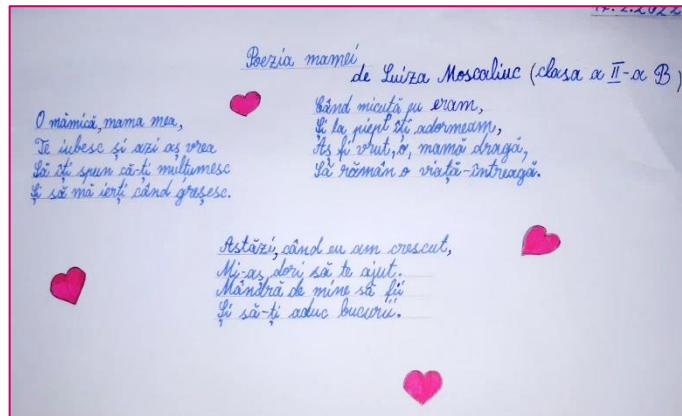 17.2.2022
Poezia mamei
de Luiza Moscaliuc (clasa a II-a B)
O mămică, mama mea,
Te iubesc și azi aș vrea
Să îți spun că-ți mulțumesc
Și să mă ierți când greșesc.
Când micuță eu eram,
Și la piept îți adormeam,
Aș fi vrut, o, mamă dragă,
Să rămân o viață-ntreagă.
Astăzi, când eu am crescut,
Mi-aș dori să te ajut.
Mândră de mine să fii
Și să-ți aduc bucurii.